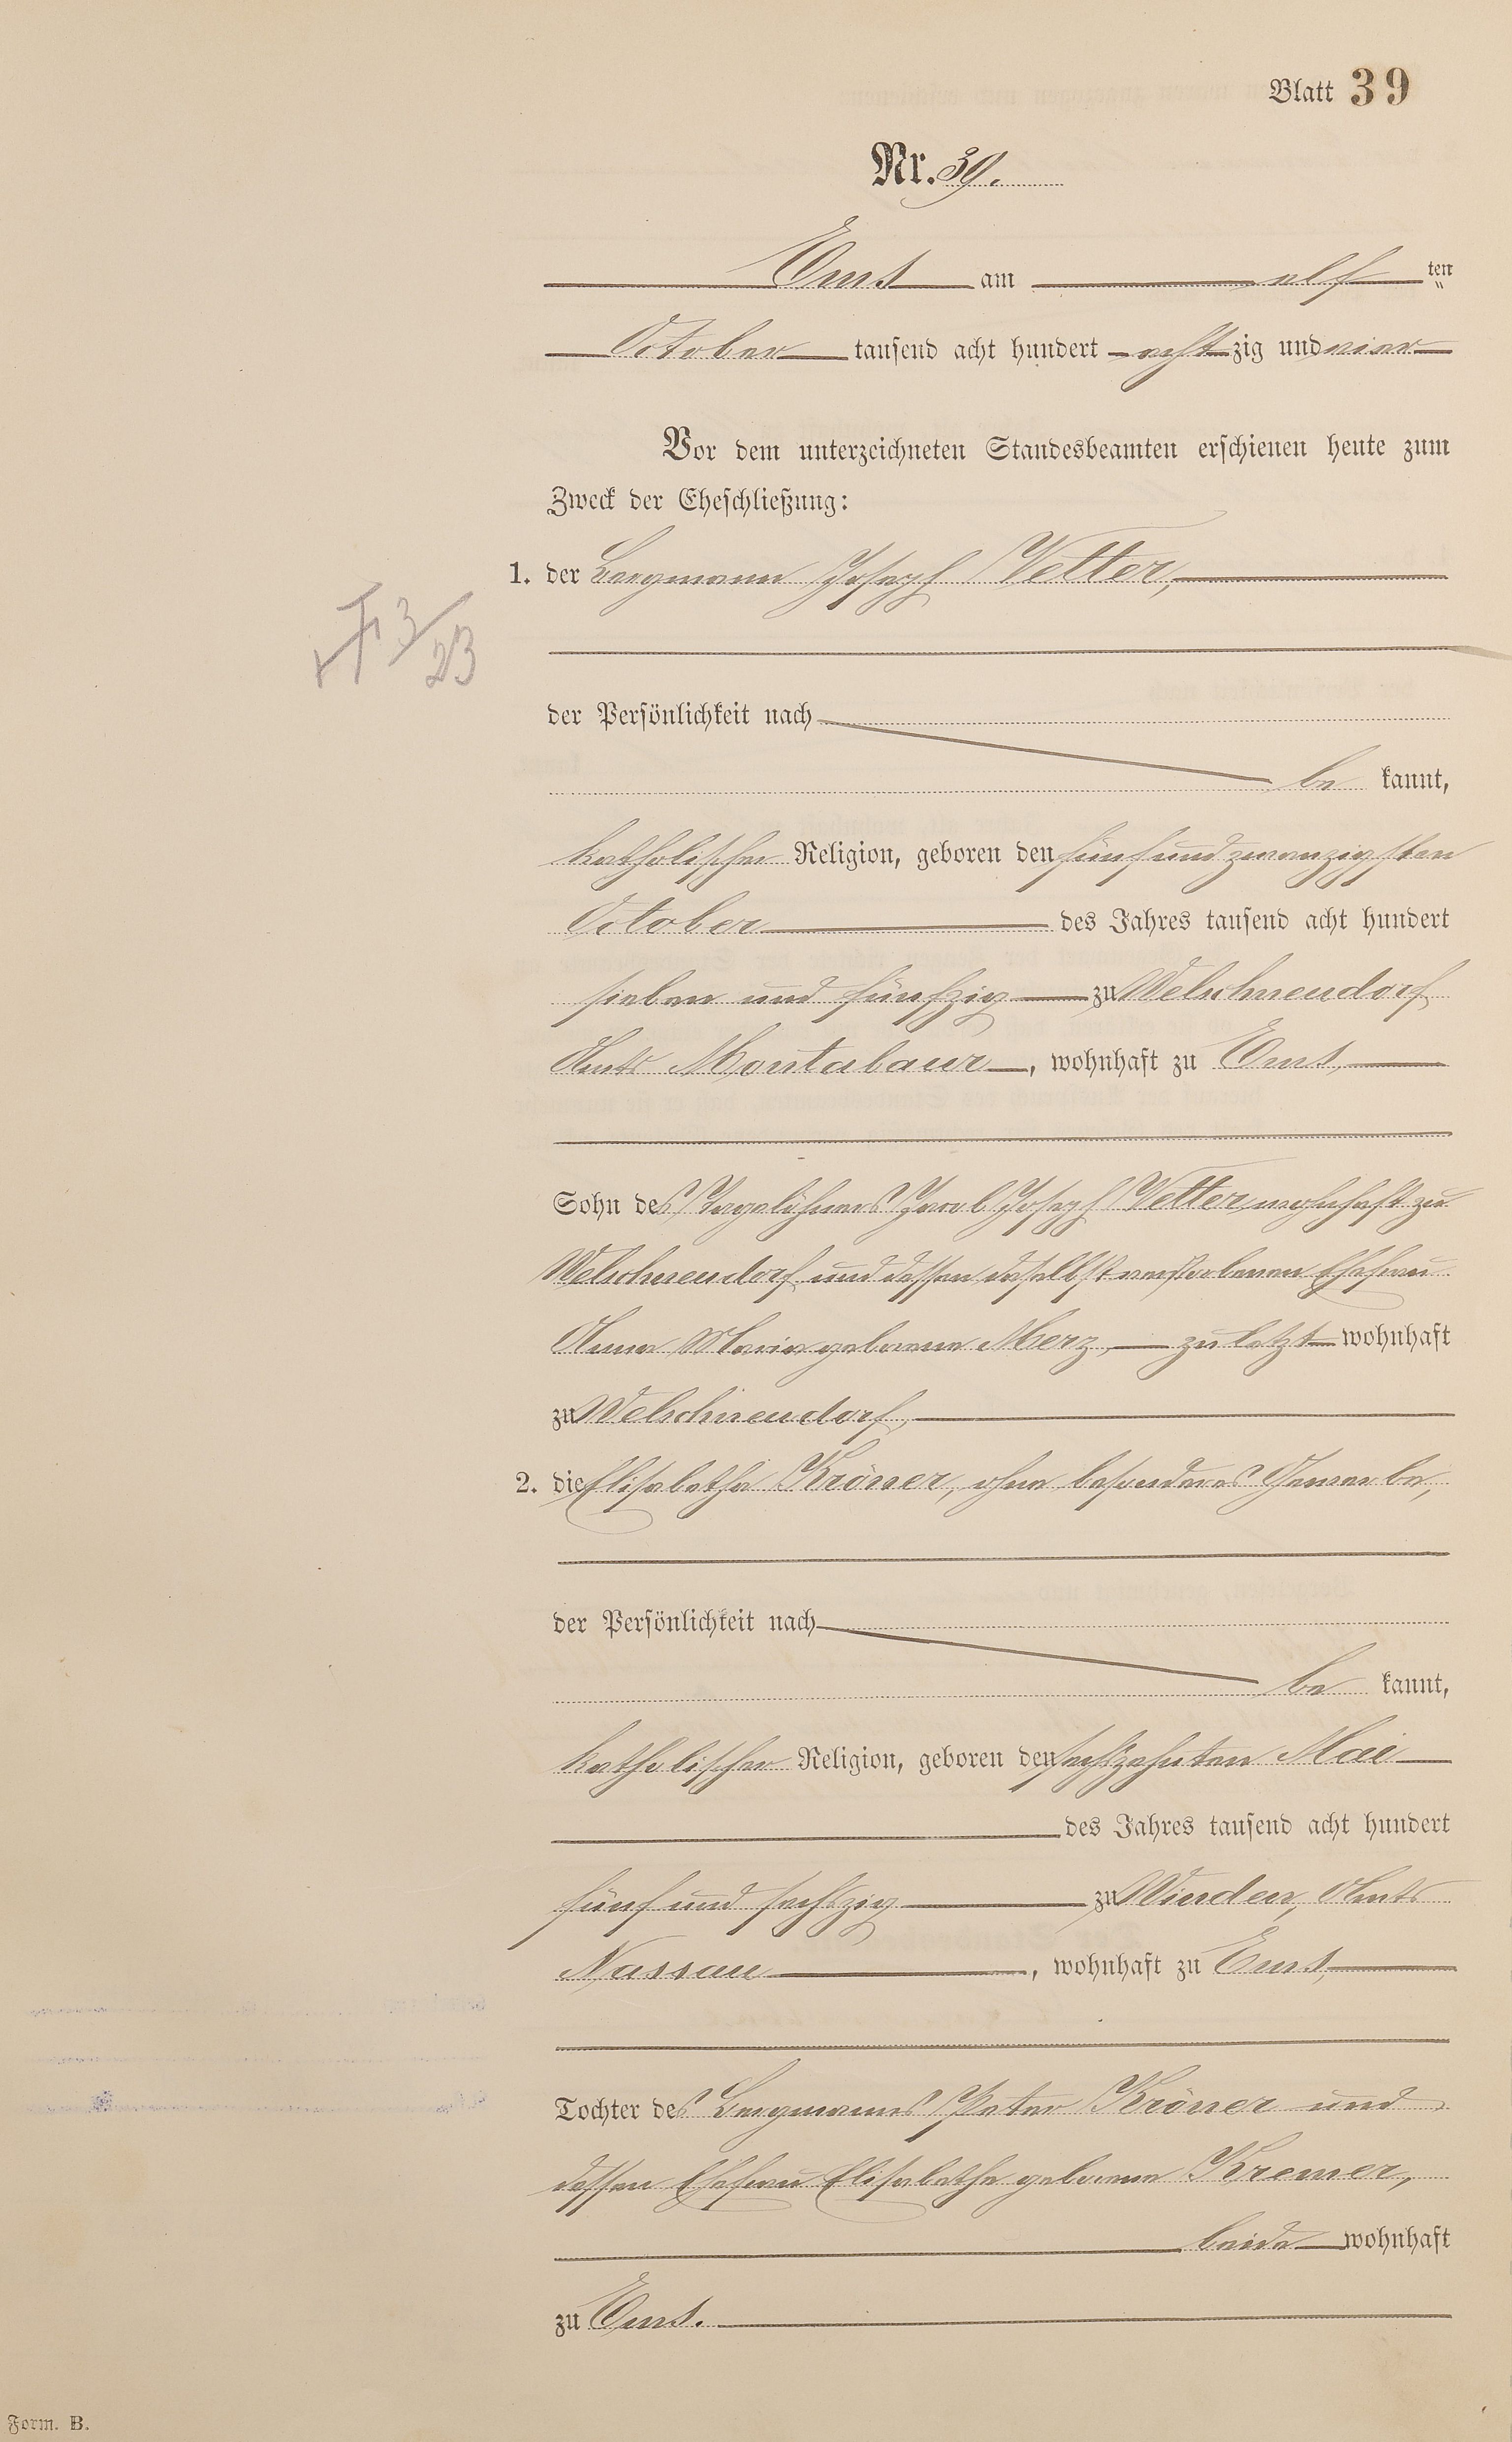 Blatt 39
Nr. 39.
Ems am elf ten
October tausend acht hundert acht zig und vier
Vor dem unterzeichneten Standesbeamten erschienen heute zum
Zweck der Eheschließung:
1. der Bergmann Joseph Vetter,
der Persönlichkeit nach
be kannt,
katholischer Religion, geboren den fünfundzwanzigsten
October des Jahres tausend acht hundert
sieben und fünfzig zu Welschneudorf
Amts Montabaur, wohnhaft zu Ems,
Sohn des Tagelöhners Jacob Joseph Vetter, wohnhaft zu
Welschneudorf und dessen daselbst verstorbenen Ehefrau
Anna Maria geborene Merz, zu letzt wohnhaft
zu Welschneudorf,
2. die Elisabetha Kröner, ohne besonderes Gewerbe,
der Persönlichkeit nach
be kannt,
katholischer Religion, geboren den sechszehnten Mai
des Jahres tausend acht hundert
fünf und sechszig zu Winden, Amts
Nassau, wohnhaft zu Ems,
Tochter des Bergmanns Peter Kröner und
dessen Ehefrau Elisabetha geborene Kremer,
beide wohnhaft
zu Ems.
Form. B.